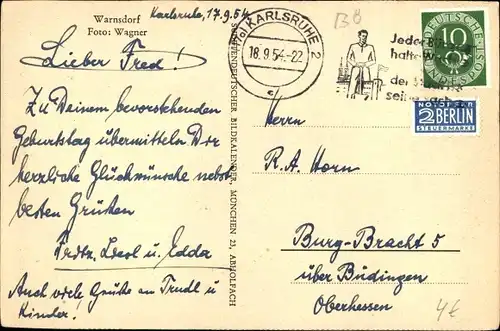 Warnsdorf
Foto: Wagner
Karlsruhe, 17.9.54
Lieber Fred!
Zu Deinem bevorstehenden
Geburtstag übermitteln Dir
herzliche Glückwünsche nebst
besten Grüßen
u. Edda
Auch viele Grüße an Trudl u
Kinder!
SUDETENDEUTSCHER BILDKALENDER, MÜNCHEN 23, ABHOLFACH
KARLSRUHE 2
18.9.54.-22
c
Jeder
halte
der
seine
DEUTSCHE BUNDESPOST
10
NOTOPFER
2 BERLIN
STEUERMARKE
Herrn
R.A. Horn
Burg-Bracht 5
über Büdingen
Oberhessen
4€